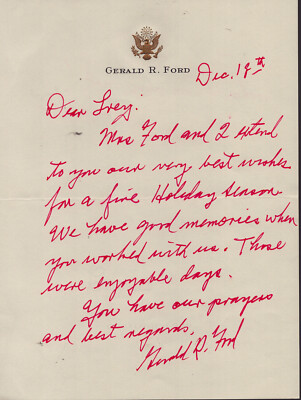 GERALD R. FORD
Dec. 18th
Dear Trey.
Mrs Ford and I extend
to you our very best wishes
for a fine Holiday Season
We have good memories when
you worked with us. Those
were enjoyable days.
You have our prayers
and best regards,
Gerald R. Ford